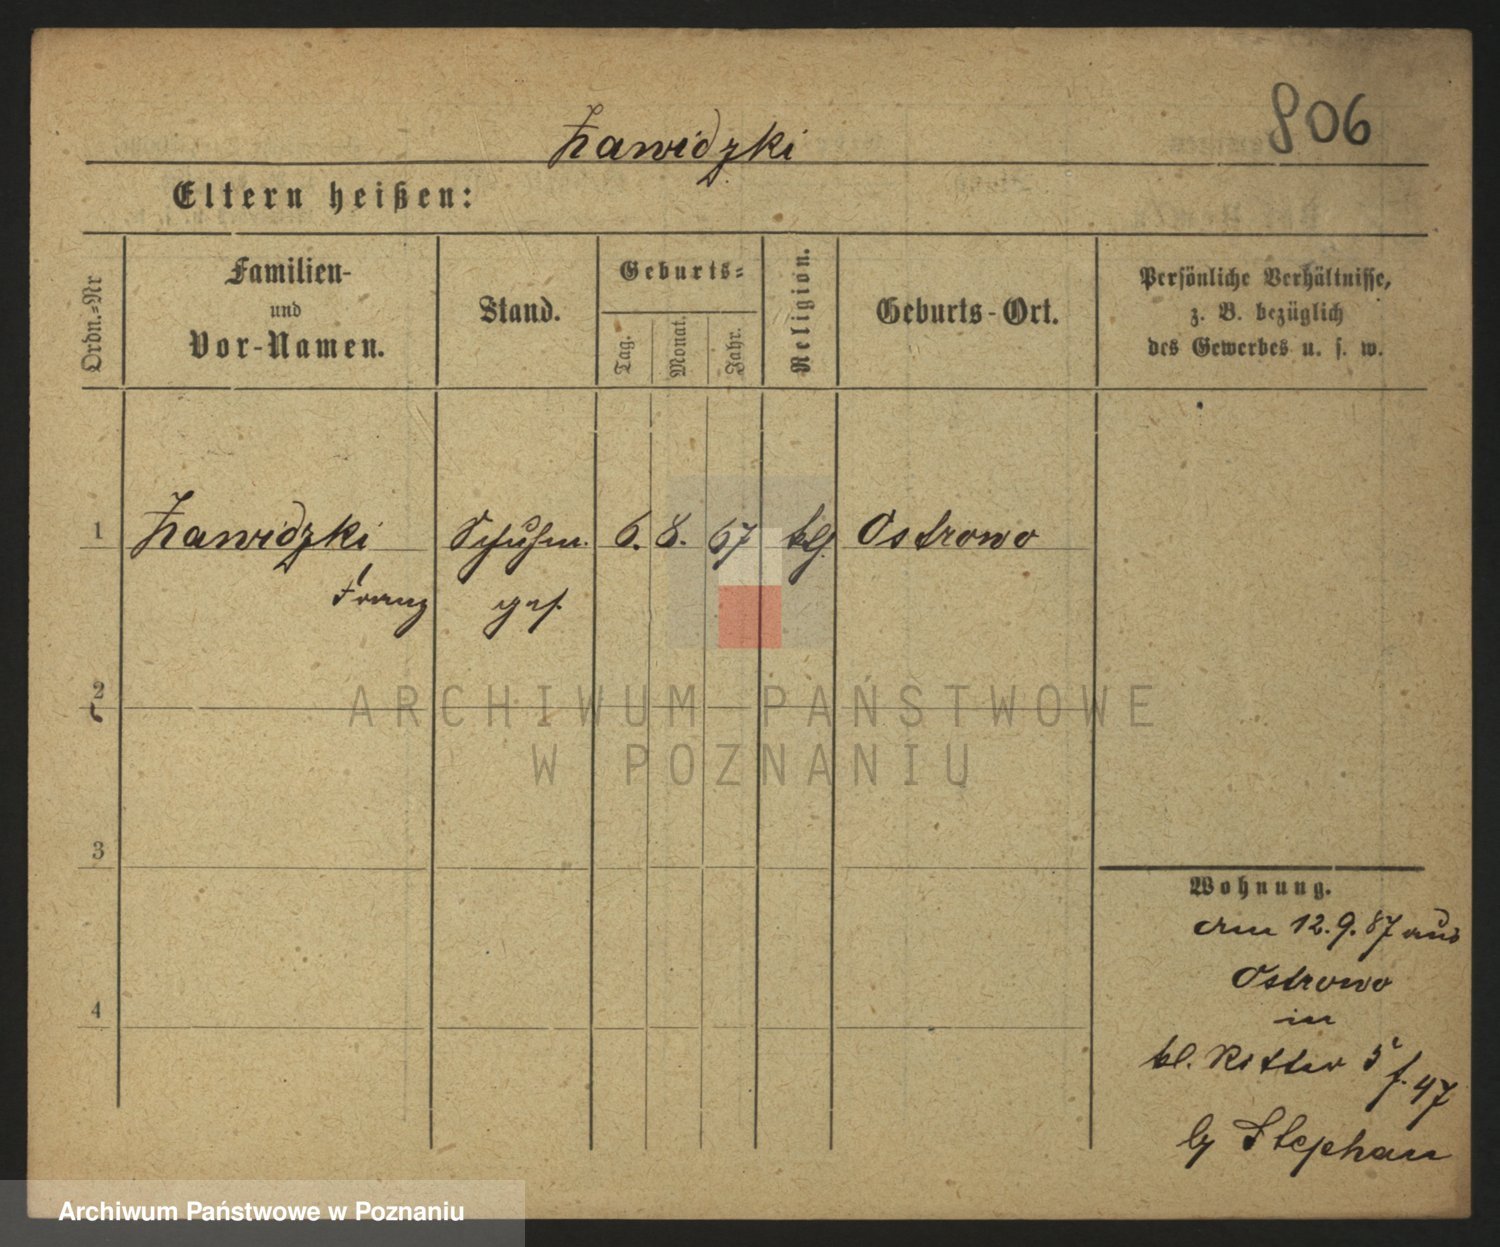 806
Zawidzki
Eltern heißen:
Ordn.-Nr
Familien-
und
Vor-Namen.
Stand.
Geburts-
Tag.
Monat.
Jahr.
Religion.
Geburts-Ort.
Persönliche Verhältnisse,
z. B. bezüglich
des Gewerbes u. s. w.
1 Zawidzki Schuhm. 6. 8. 67 klg. Ostrowo
Franz ges.
2
ARCHIWUM PAŃSTWOWE
W POZNANIU
3
Wohnung.
am 12.9.87 aus
Ostrowo
in
4
kl. Ritter 5 f. 47
by Stephan
Archiwum Państwowe w Poznaniu